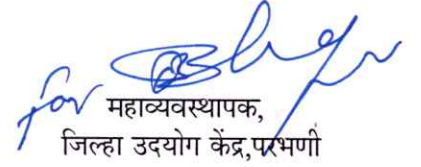 for
महाव्यवस्थापक,
जिल्हा उदयोग केंद्र,परभणी